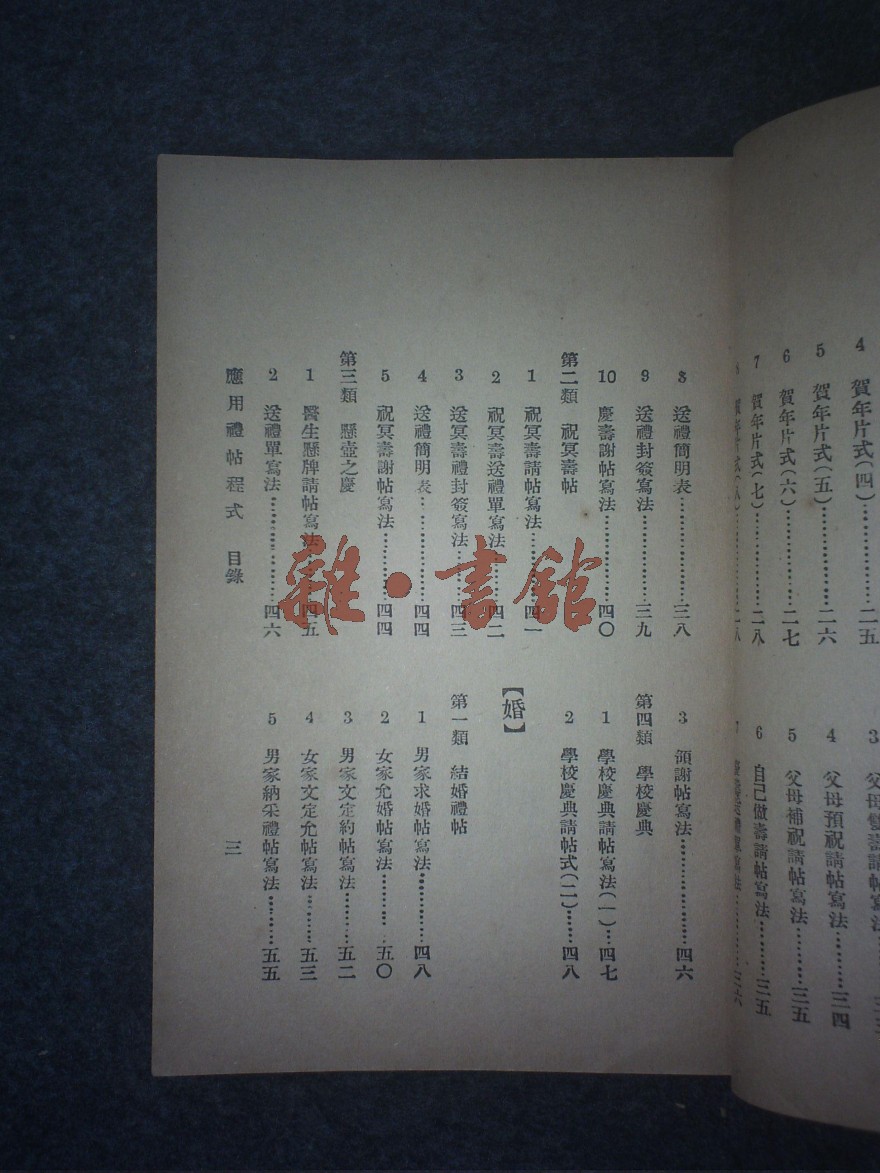 4 賀年片式(四)…………二五
5 賀年片式(五)…………二六
6 賀年片式(六)…………二七
7 賀年片式(七)…………二八
4 父母預祝請帖寫法…………三四
5 父母補祝請帖寫法…………三五
6 自己做壽請帖寫法…………三五
8 送禮簡明表…………三八
9 送禮封簽寫法…………三九
10 慶壽謝帖寫法…………四〇
第二類 祝冥壽帖
1 祝冥壽請帖寫法…………四一
2 祝冥壽送禮單寫法…………四二
3 送冥壽禮封簽寫法…………四三
4 送禮簡明表…………四四
5 祝冥壽謝帖寫法…………四四
第三類 懸壺之慶
1 醫生懸牌請帖寫法…………四五
2 送禮單寫法…………四六
3 領謝帖寫法…………四六
第四類 學校慶典
1 學校慶典請帖寫法(一)……四七
2 學校慶典請帖式(二)……四八
【婚】
第一類 結婚禮帖
1 男家求婚帖寫法…………四八
2 女家允婚帖寫法…………五〇
3 男家文定約帖寫法…………五二
4 女家文定允帖寫法…………五三
5 男家納采禮帖寫法…………五五
應用禮帖程式 目錄
三
雜·書館